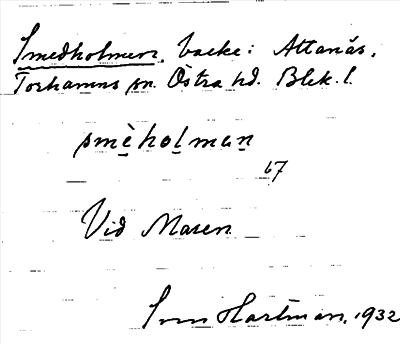 Smedholmen. backe: Attanäs,
Torhamns sn. Östra hd. Blek. l.
smèholman
67
Vid Maren
Sven Hartman, 1932